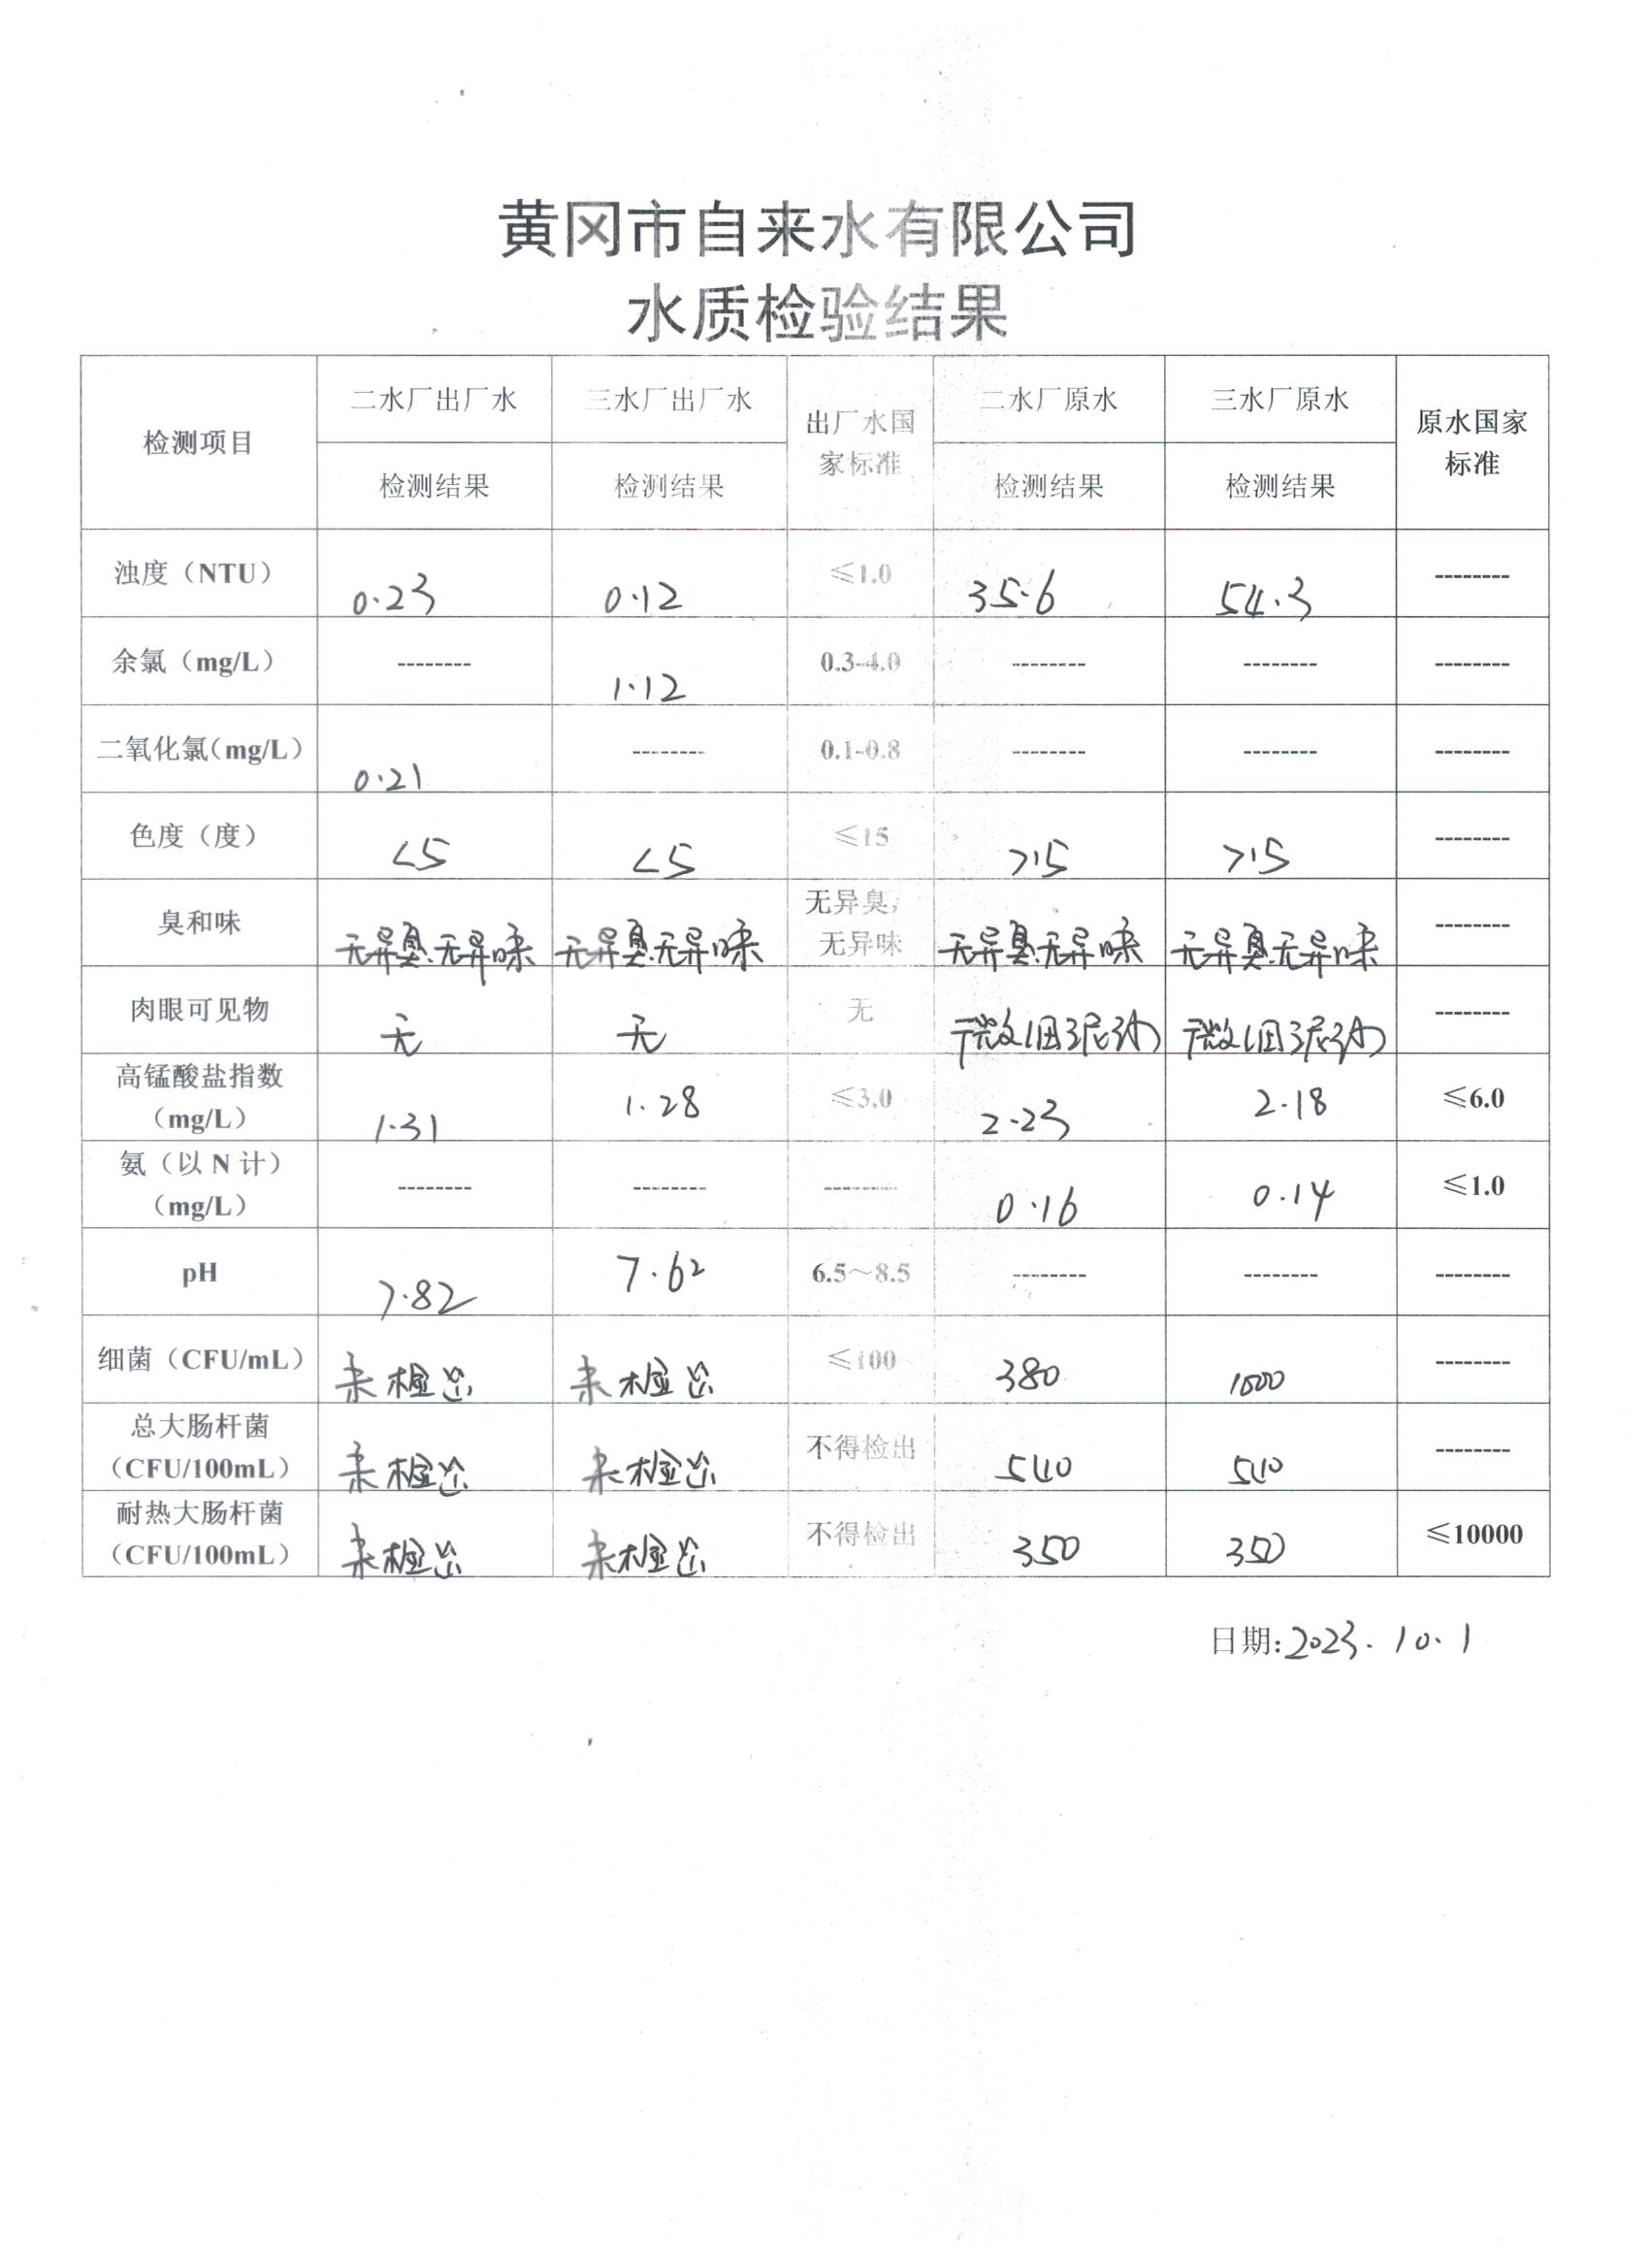 黄冈市自来水有限公司
水质检验结果
检测项目 二水厂出厂水 三水厂出厂水 出厂水国家标准 二水厂原水 三水厂原水 原水国家标准
检测结果 检测结果 检测结果 检测结果
浊度（NTU） 0.23 0.12 ≤1.0 35.6 54.3 --------
余氯（mg/L） -------- 1.12 0.3-4.0 -------- -------- --------
二氧化氯（mg/L） 0.21 -------- 0.1-0.8 -------- -------- --------
色度（度） <5 <5 ≤15 >15 >15 --------
臭和味 无异臭.无异味 无异臭.无异味 无异臭，无异味 无异臭.无异味 无异臭.无异味 --------
肉眼可见物 无 无 无 微细泥沙 微细泥沙 --------
高锰酸盐指数（mg/L） 1.31 1.28 ≤3.0 2.23 2.18 ≤6.0
氨（以 N 计）（mg/L） -------- -------- -------- 0.16 0.14 ≤1.0
pH 7.82 7.62 6.5～8.5 -------- -------- --------
细菌（CFU/mL） 未检出 未检出 ≤100 380 --------
总大肠杆菌（CFU/100mL） 未检出 未检出 不得检出 540 540 --------
耐热大肠杆菌（CFU/100mL） 未检出 未检出 不得检出 350 350 ≤10000
日期：2023.10.1